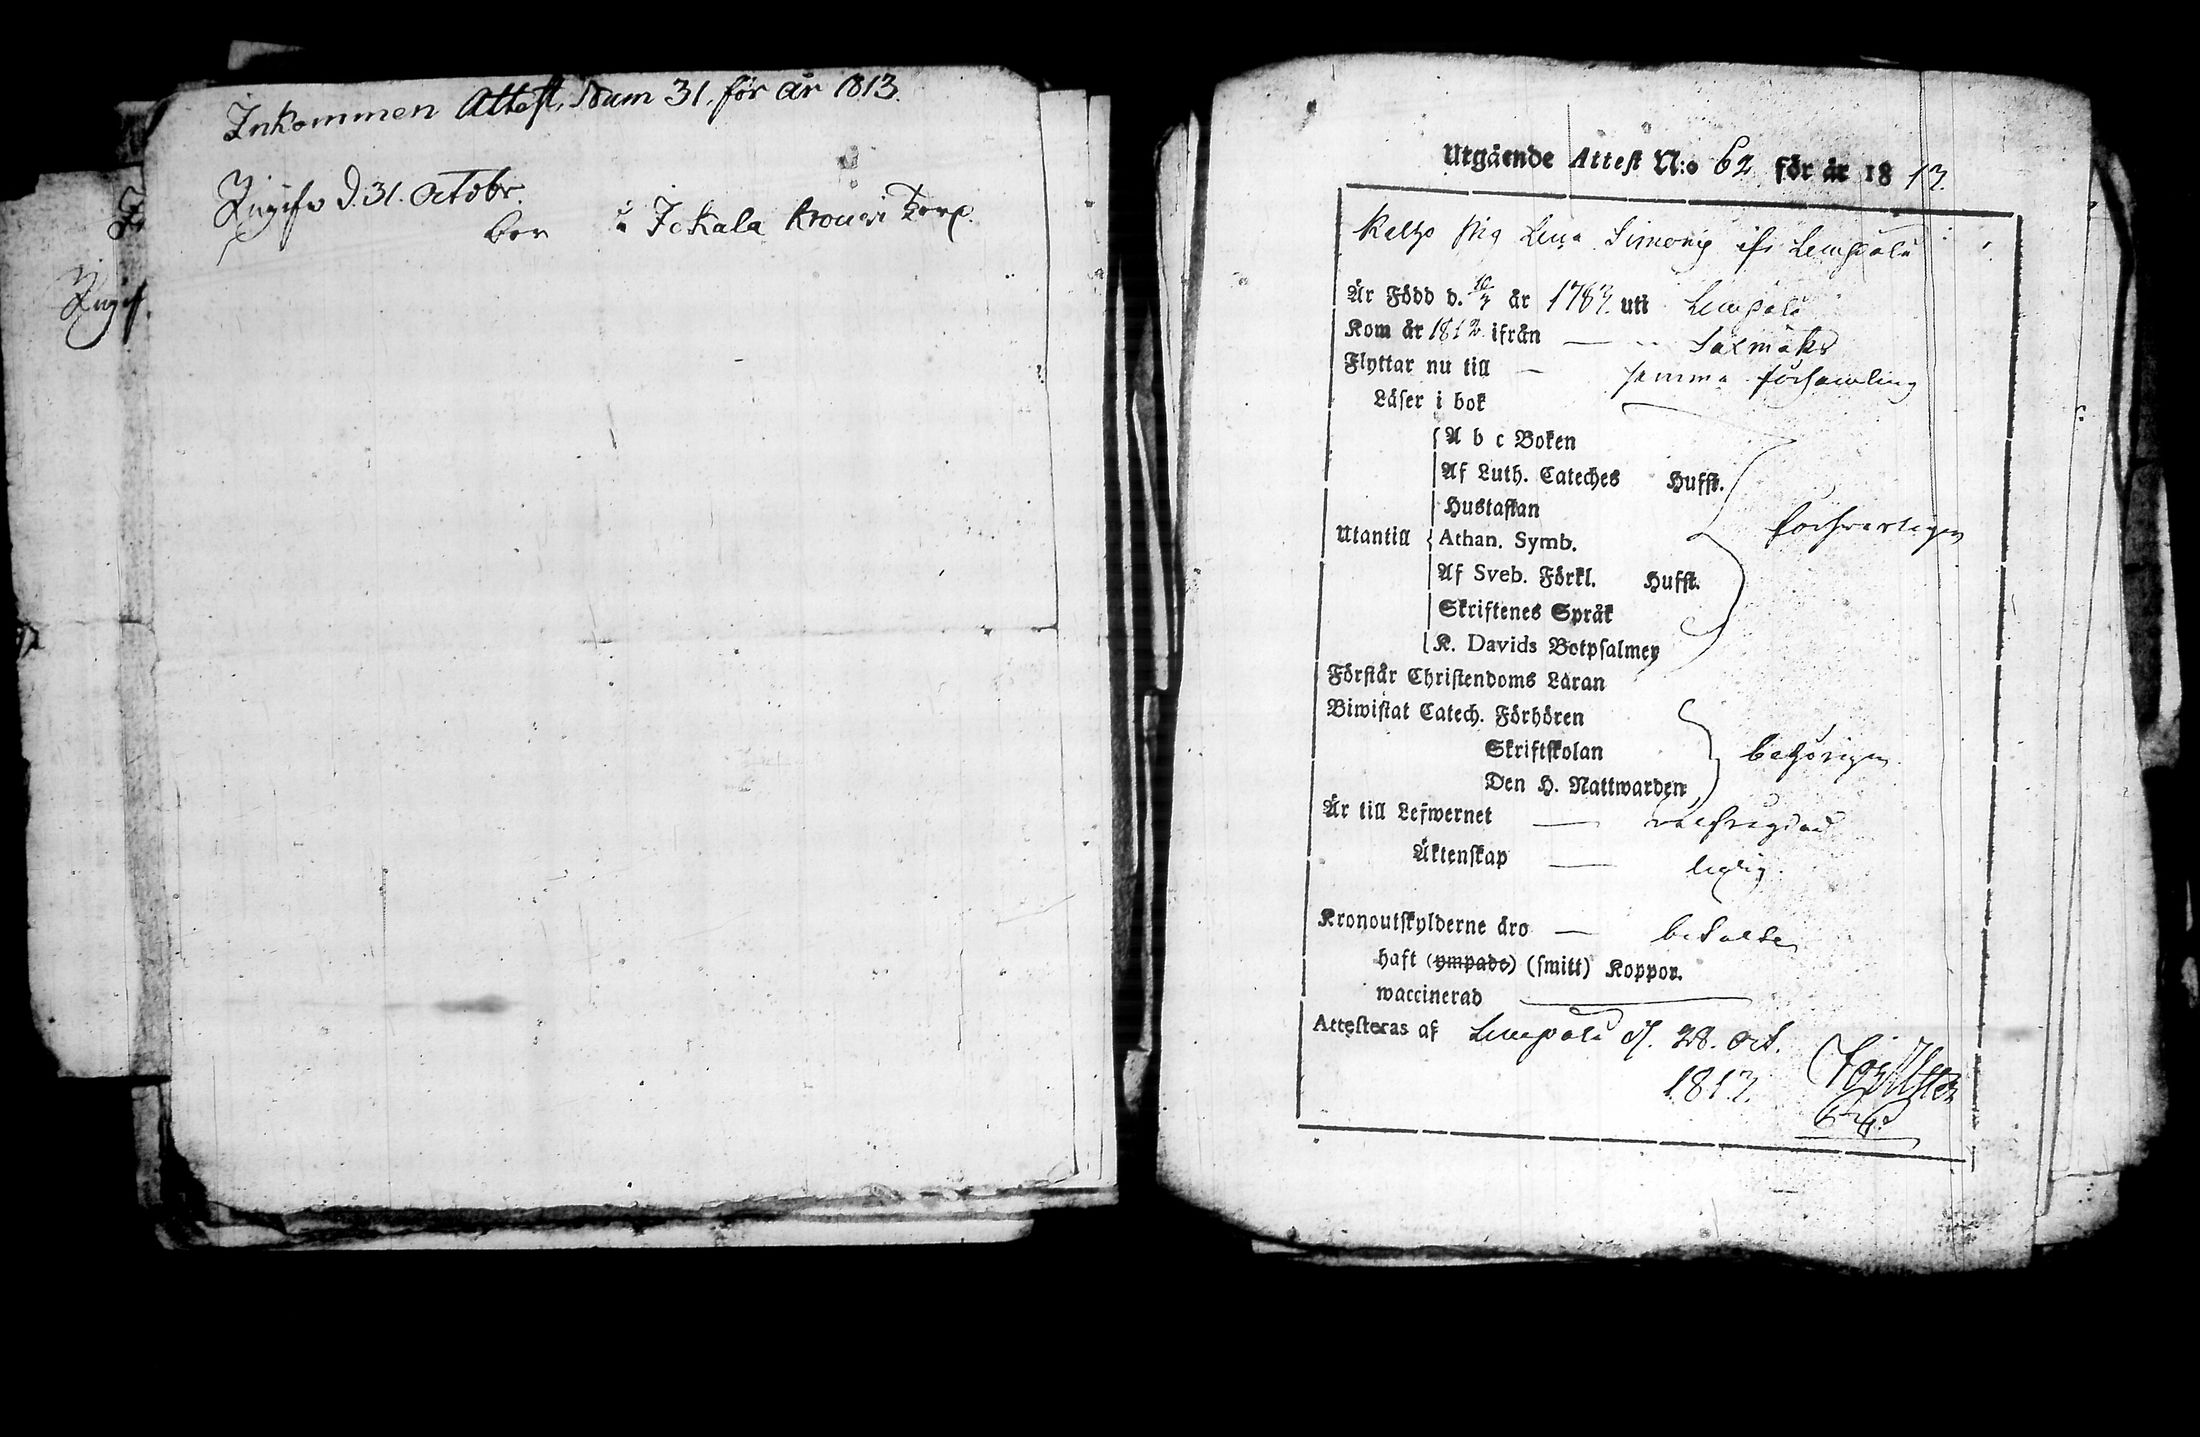 Inkommen Attest, Num 31. för år 1813.
d. 31. Octobr.
bor Kouvi Torp.
Utgående Attest N:o 62 för år 1813.
Pig Lena ifr Lempälä
Är Född d. år 1783. uti Lempälä
Kom år 1812 ifrån — Säxmäki
Flyttar nu till — samma församling
Läser i bok
A b c Boken
Af Luth. Cateches Hufst.
Hustaflan
Utantill Athan. Symb. försvarligen
Af Sveb. Förkl. Hufst.
Skriftenes Språk
K. Davids Botpsalmer
Förstår Christendoms Läran
Biwistat Catech. Förhören
Skriftskolan behörigen
Den H. Nattwarden
Är till Lefwernet — välfrägdad
Äktenskap — ledig.
Kronoutskylderne äro — betalte
haft (ympade) (smitt) Koppor.
waccinerad —
Attesteras af Lempälä d. 28. Oct.
1813.